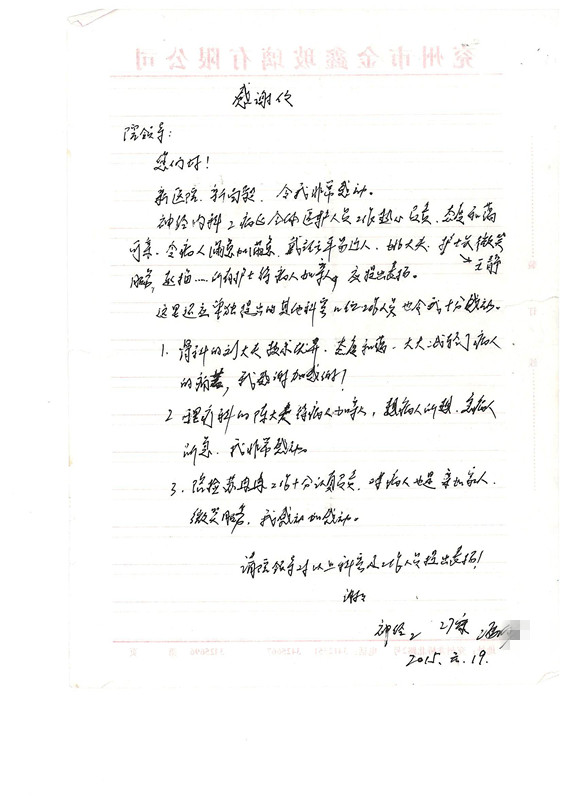 感谢信
院领导:
您们好!
新医院、新面貌、令我非常感动。
神经内科2病区全体医护人员工作热心负责、态度和蔼
可亲、令病人满意加满意,
护士长微笑
王静
服务,
所有护士待病人如亲人,应提出表扬。
这里还应单独提出的其他科室几位工作人员也令我十分感动。
1. 骨科的刘大夫技术优异、态度和蔼、大大减轻了病人
的病苦,我感谢加感谢!
2. 理疗科的陈大夫待病人如亲人,想病人所想、急病人
所急、我非常感动。
3. 工作十分认真负责,对病人也是亲如家人、
微笑服务,我感动加感动。
请院领导对以上科室及工作人员提出表扬!
谢谢
神经2 27床
2015. 19.
兖州市金鑫玻璃有限公司